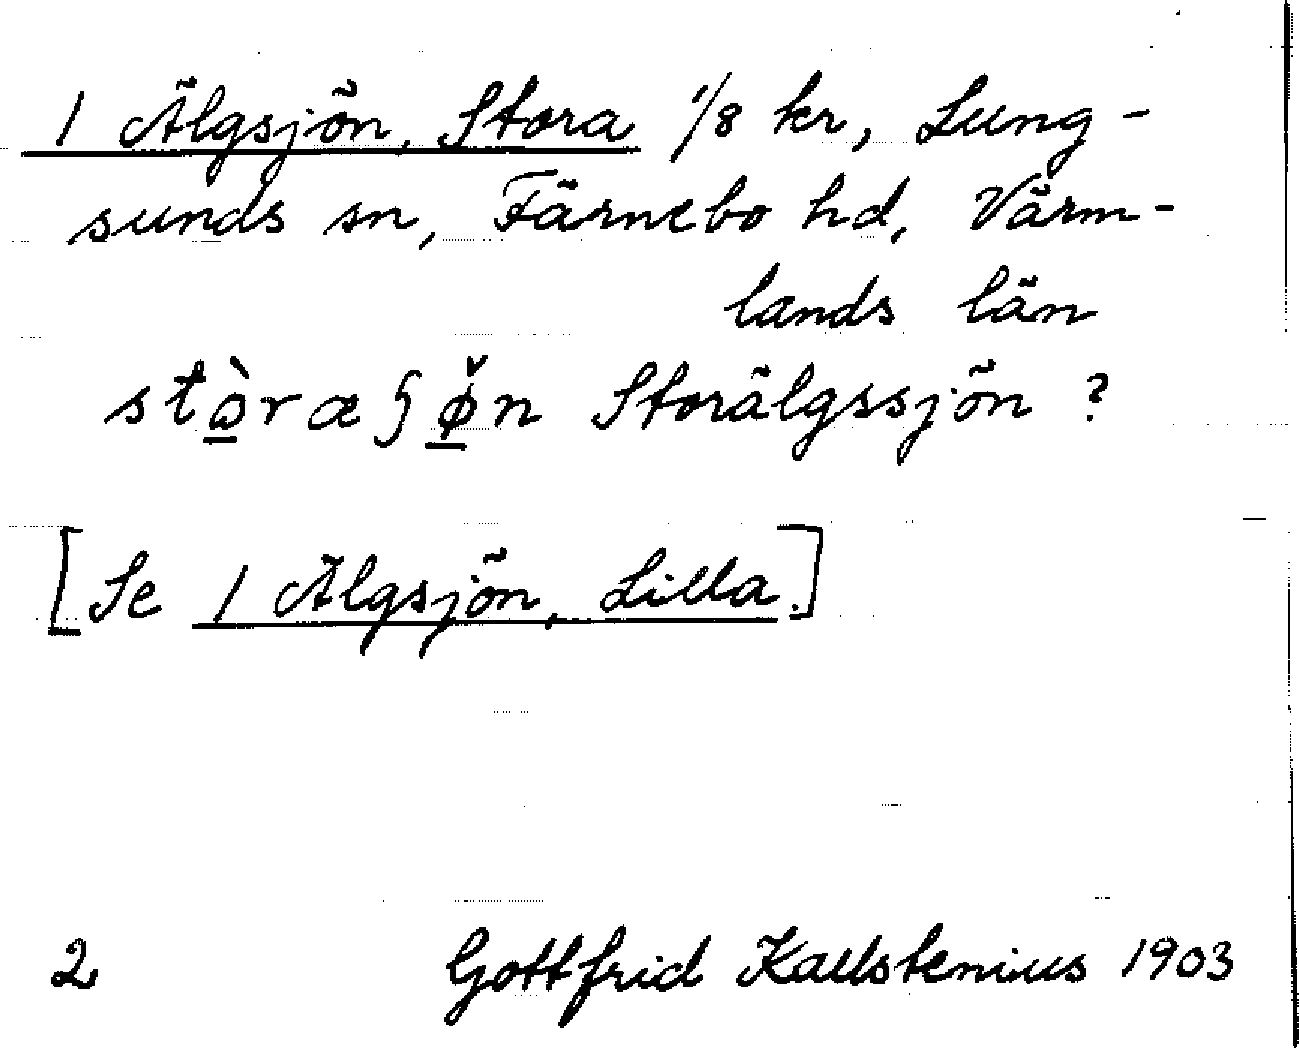 1 Älgsjön, Stora 1/8 kr, Lung-
sunds sn, Färnebo hd, Värm-
lands län
stɷ̠̀ræʃø̠̌n Storälgssjön ?
[Se 1 Älgsjön, Lilla.]
2 Gottfrid Kallstenius 1903